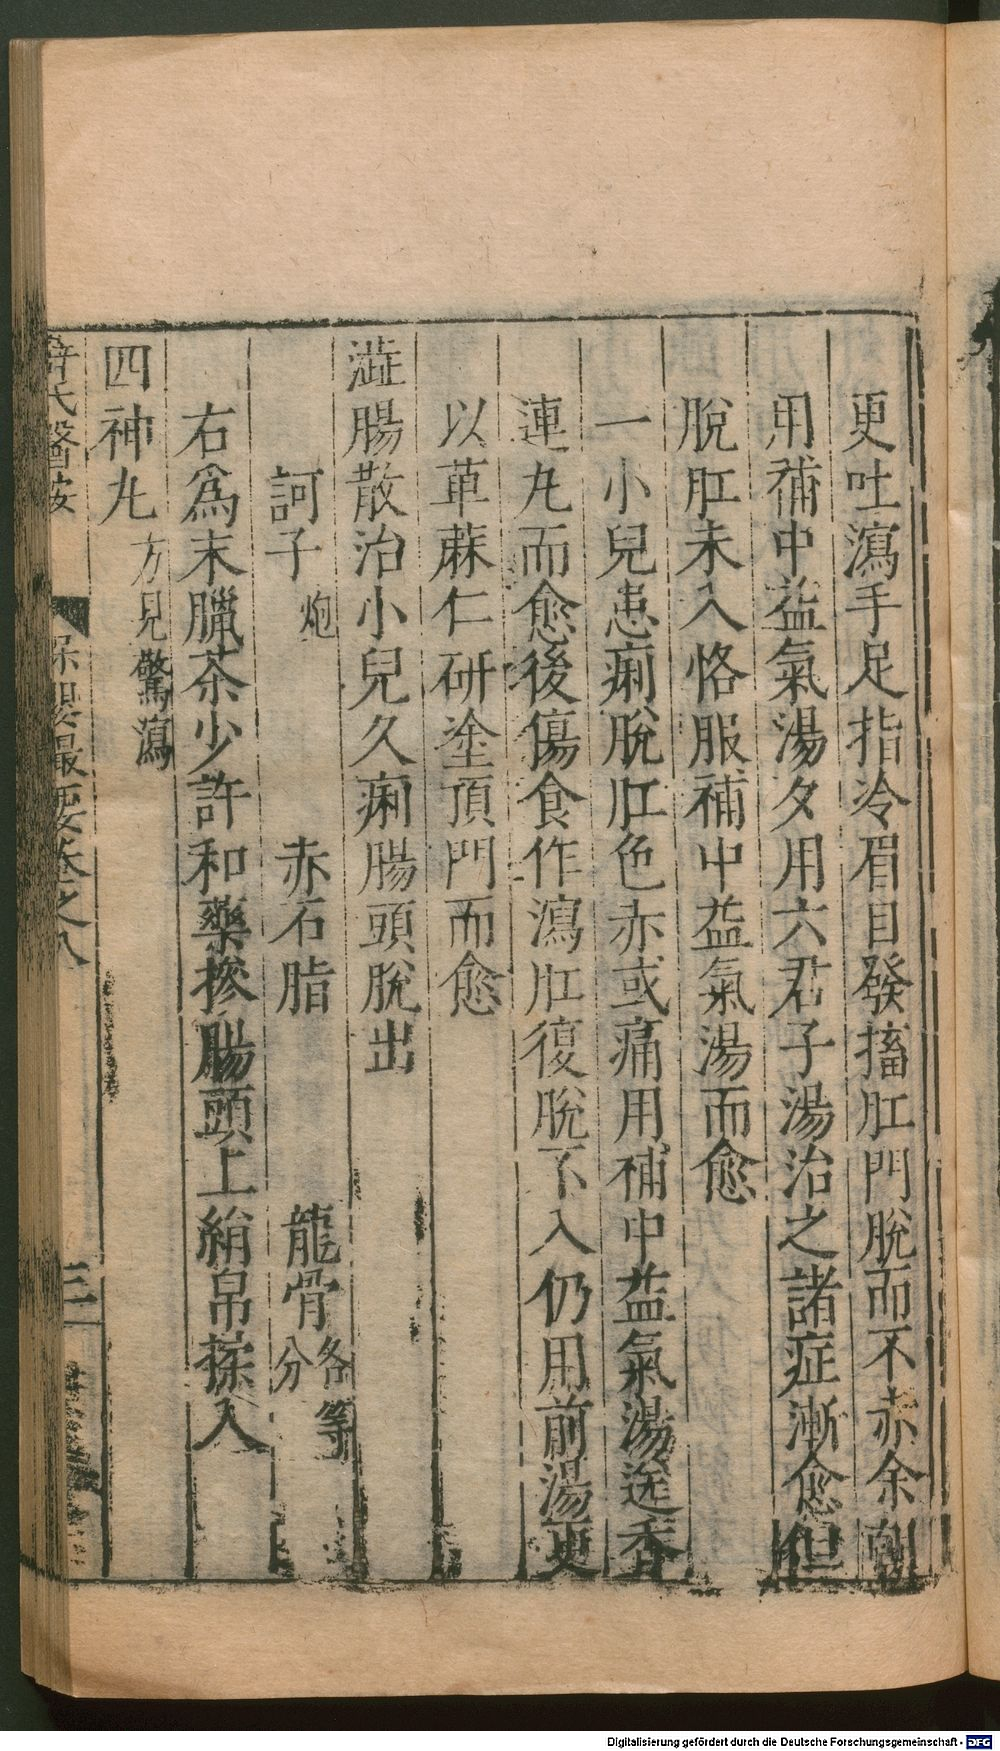 更吐瀉手足指冷眉目發搐肛門脫而不赤余朝
用補中益氣湯夕用六君子湯治之諸症漸愈但
脫肛未入恪服補中益氣湯而愈
一小兒患痢脫肛色赤或痛用補中益氣湯送香
連丸而愈後傷食作瀉肛復脫不入仍用前湯更
以萆蔴仁研塗頂門而愈
澁腸散治小兒久痢腸頭脫出
訶子炮 赤石脂 龍骨各等分
右爲末臘茶少許和藥摻腸頭上絹帛揉入
四神丸方見驚瀉
薛氏醫按 保嬰撮要卷之八 三
Digitalisierung gefördert durch die Deutsche Forschungsgemeinschaft - DFG